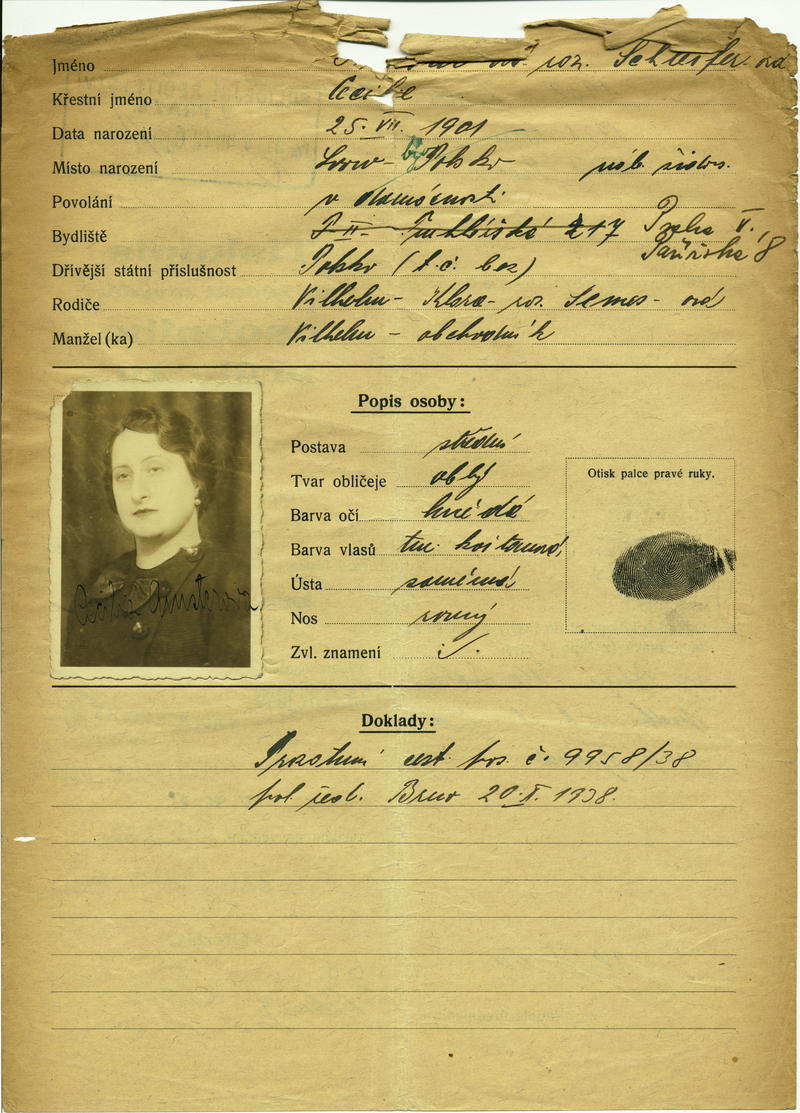 Jméno roz.
Křestní jméno Cecilie
Data narození 25. VII. 1901
Místo narození Lwow - Polsko náb. židov.
Povolání v domácnosti
Bydliště 217 Praha V.,
Pařížská 8
Dřívější státní příslušnost Polsko (t. č. bez)
Rodiče Vilhelm - Klara - roz.
Manžel (ka) Vilhelm - obchodník
Popis osoby:
Postava střední
Tvar obličeje oblý
Barva očí hnědá
Barva vlasů tm. kaštanová,
Ústa souměrná
Nos rovný
Zvl. znamení
Otisk palce pravé ruky.
Doklady:
Prozatimní cest. pas. č. 9958/38
pol. řed. Brno 20. X. 1938.